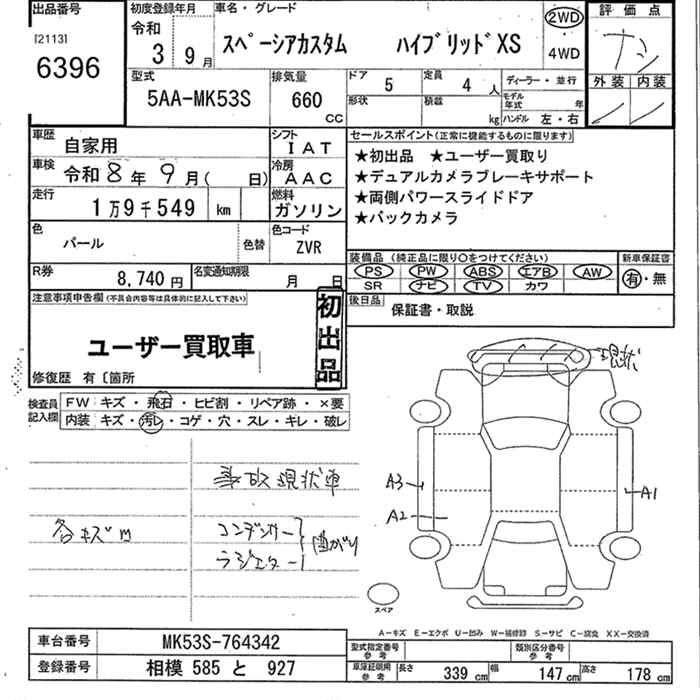 出品番号
[2113]
6396
初度登録年月
令和
3 9月
車名・グレード
スペーシアカスタム ハイブリッドXS
2WD
4WD
評価点
ナシ
外装 内装
型式
5AA-MK53S
排気量
660
CC
ドア
5
定員
4 人
形状
積載
kg
ディーラー・並行
モデル年式 年
ハンドル 左・右
車歴
自家用
シフト
IAT
車検
令和 8年 9月( 日)
冷房
AAC
走行
1万9千549 km
燃料
ガソリン
色
パール
色替
色コード
ZVR
R券
8,740円
名変通知期限
月 日
セールスポイント(正常に機能するものに限ります)
★初出品 ★ユーザー買取り
★デュアルカメラブレーキサポート
★両側パワースライドドア
★バックカメラ
装備品(純正品に限り○をつけてください)
PS PW ABS エアB AW
SR ナビ TV カワ
新車保証書
有・無
後日品
保証書・取説
注意事項申告欄(不具合内容等は具体的に記入して下さい)
ユーザー買取車
初出品
修復歴 有〔箇所
検査員記入欄
FW キズ・飛石・ヒビ割・リペア跡・×要
内装 キズ・汚レ・コゲ・穴・スレ・キレ・破レ
事故現状車
各キズm
コンデンサー
ラジエター
曲がり
現状
A3
A2
A1
スペア
A-キズ E-エクボ U-凹み W-補修跡 S-サビ C-腐食 XX-交換済
車台番号
MK53S-764342
登録番号
相模 585 と 927
型式指定番号
参考
類別区分番号
参考
車庫証明用
参考
長さ 339cm 幅 147cm 高さ 178cm